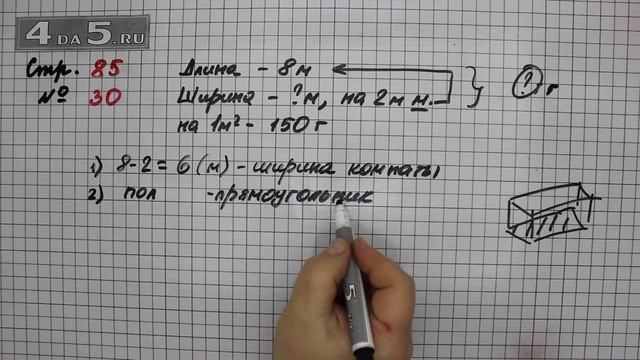 4DA5.RU
Стр. 85
№ 30
Длина - 8 м
Ширина - ? м, на 2 м м.
на 1 м² - 150 г
? г
1) 8-2 = 6 (м) - ширина комнаты
2) пол - прямоугольник